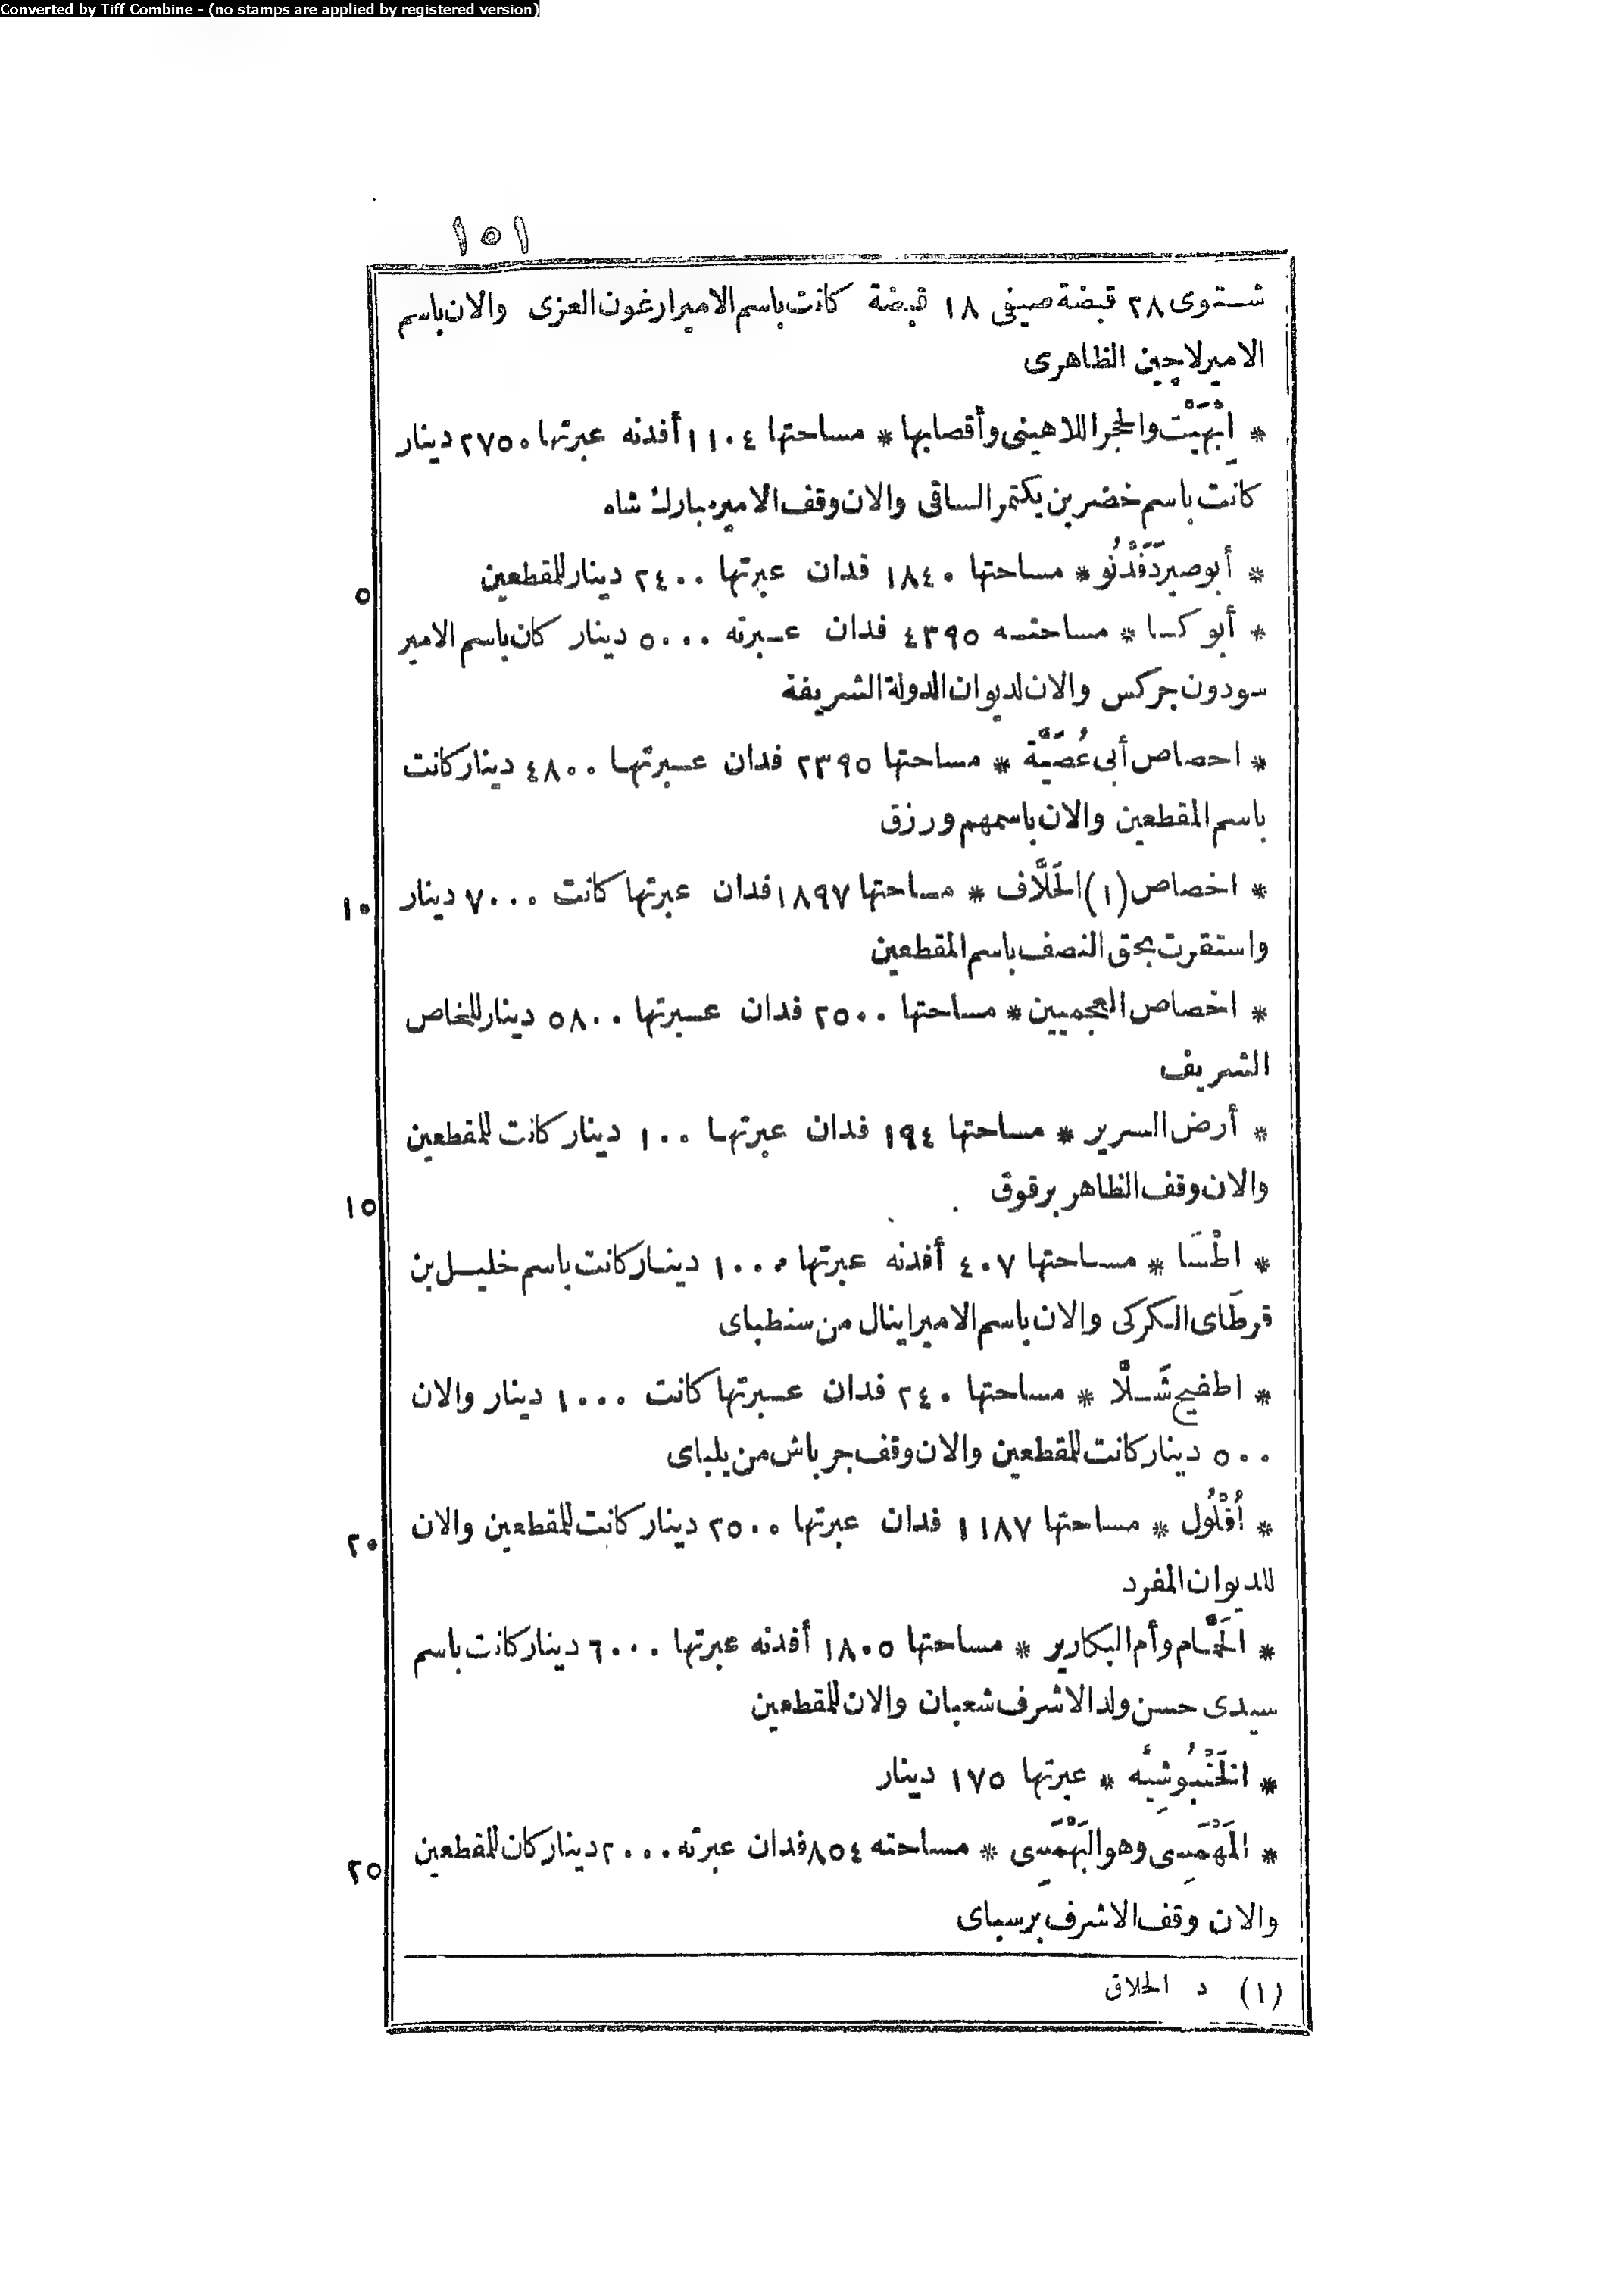 Converted by Tiff Combine - (no stamps are applied by registered version)
١٥١
شتوى ٢٨ قبضة صيفى ١٨ قبضة كانت باسم الامير ارغون العزى والان باسم
الامير لاجين الظاهرى
* اِبْهَيْت والحجر اللاهينى وأقصابها * مساحتها ١١٠٤ أفدنه عبرتها ٢٧٥٠ دينار
كانت باسم خضر بن بكتمر الساقى والان وقف الامير مبارك شاه
* أبو صير دَفَدْنُو * مساحتها ١٨٤٠ فدان عبرتها ٢٤٠٠ دينار للمقطعين
٥
* أبو كسا * مساحته ٤٣٩٥ فدان عبرته ٥٠٠٠ دينار كان باسم الامير
سودون جركس والان لديوان الدولة الشريفة
* احصاص أبى عُصَيَّة * مساحتها ٢٣٩٥ فدان عبرتها ٤٨٠٠ دينار كانت
باسم المقطعين والان باسمهم ورزق
* اخصاص (١) الحَلَّاف * مساحتها ١٨٩٧ فدان عبرتها كانت ٧٠٠٠ دينار
١٠
واستقرت بحق النصف باسم المقطعين
* اخصاص العجميين * مساحتها ٢٥٠٠ فدان عبرتها ٥٨٠٠ دينار للخاص
الشريف
* أرض السرير * مساحتها ١٩٤ فدان عبرتها ١٠٠ دينار كانت للمقطعين
والان وقف الظاهر برقوق
١٥
* اطْسَا * مساحتها ٤٠٧ أفدنه عبرتها ١٠٠٠ دينار كانت باسم خليل بن
قرطاى الكركى والان باسم الامير اينال من سنطباى
* اطفيح شَلَّا * مساحتها ٢٤٠ فدان عبرتها كانت ١٠٠٠ دينار والان
٥٠٠ دينار كانت للمقطعين والان وقف جرباش من يلباى
* أُقْلُول * مساحتها ١١٨٧ فدان عبرتها ٢٥٠٠ دينار كانت للمقطعين والان
٢٠
للديوان المفرد
* الحَمَّام وأم البكارير * مساحتها ١٨٠٥ أفدنه عبرتها ٦٠٠٠ دينار كانت باسم
سيدى حسن ولد الاشرف شعبان والان للمقطعين
* الخَنْبُوشِيَّه * عبرتها ١٧٥ دينار
* المَهْمَسِى وهو البَهْمَسِى * مساحته ٨٥٤ فدان عبرته ٢٠٠٠ دينار كان للمقطعين
٢٥
والان وقف الاشرف برسباى
(١) د الحلاق